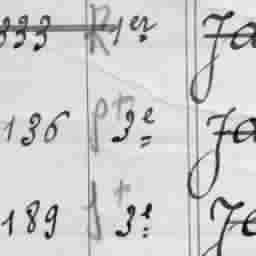 333 R 1er Ja
136 pt 3e Ja
189 t 3e Je